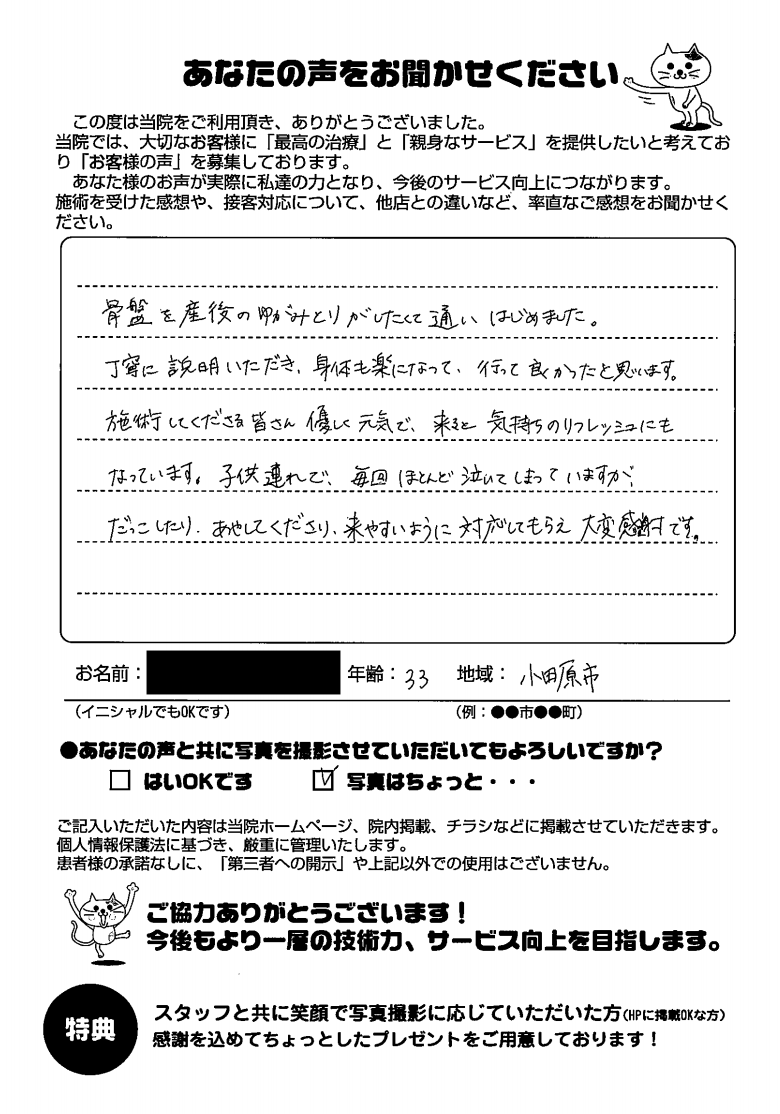 あなたの声をお聞かせください
この度は当院をご利用頂き、ありがとうございました。
当院では、大切なお客様に「最高の治療」と「親身なサービス」を提供したいと考えてお
り「お客様の声」を募集しております。
あなた様のお声が実際に私達の力となり、今後のサービス向上につながります。
施術を受けた感想や、接客対応について、他店との違いなど、率直なご感想をお聞かせく
ださい。
骨盤を産後のゆがみとりがしたくて通いはじめました。
丁寧に説明いただき、身体も楽になって、行って良かったと思います。
施術してくださる皆さん優しく元気で、来ると気持ちのリフレッシュにも
なっています。子供連れで、毎回ほとんど泣いてしまっていますが、
だっこしたり、あやしてくださり、来やすいように対応してもらえ大変感謝です。
お名前： 年齢：33 地域：小田原市
（イニシャルでもOKです） （例：●●市●●町）
●あなたの声と共に写真を撮影させていただいてもよろしいですか？
□ はいOKです ☑ 写真はちょっと・・・
ご記入いただいた内容は当院ホームページ、院内掲載、チラシなどに掲載させていただきます。
個人情報保護法に基づき、厳重に管理いたします。
患者様の承諾なしに、「第三者への開示」や上記以外での使用はございません。
ご協力ありがとうございます！
今後もより一層の技術力、サービス向上を目指します。
特典
スタッフと共に笑顔で写真撮影に応じていただいた方(HPに掲載OKな方)
感謝を込めてちょっとしたプレゼントをご用意しております！